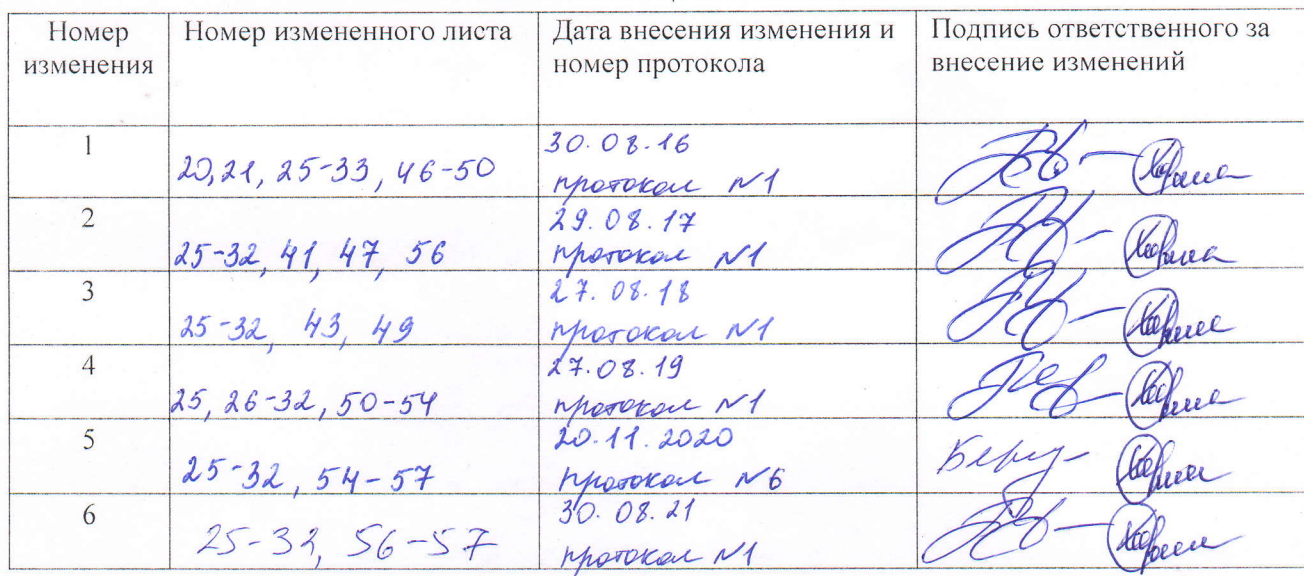 Номер Номер измененного листа Дата внесения изменения и Подпись ответственного за
изменения номер протокола внесение изменений
1 20,21, 25-33, 46-50 30.08.16
протокол №1
2 25-32, 41, 47, 56 29.08.17
протокол №1
3 25-32, 43, 49 27.08.18
протокол №1
4 25, 26-32, 50-54 27.08.19
протокол №1
5 25-32, 54-57 20.11.2020
протокол №6
6 25-32, 56-57 30.08.21
протокол №1